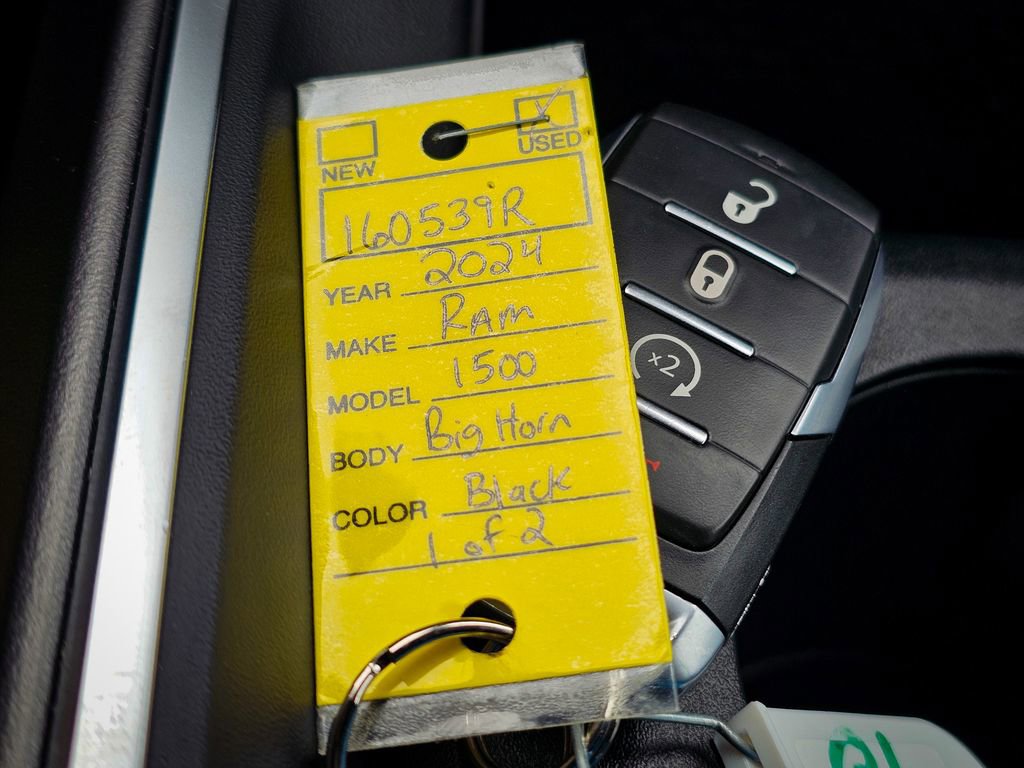 NEW USED
160539R
YEAR 2024
MAKE RAM
MODEL 1500
BODY Big Horn
COLOR Black
1 of 2
x2